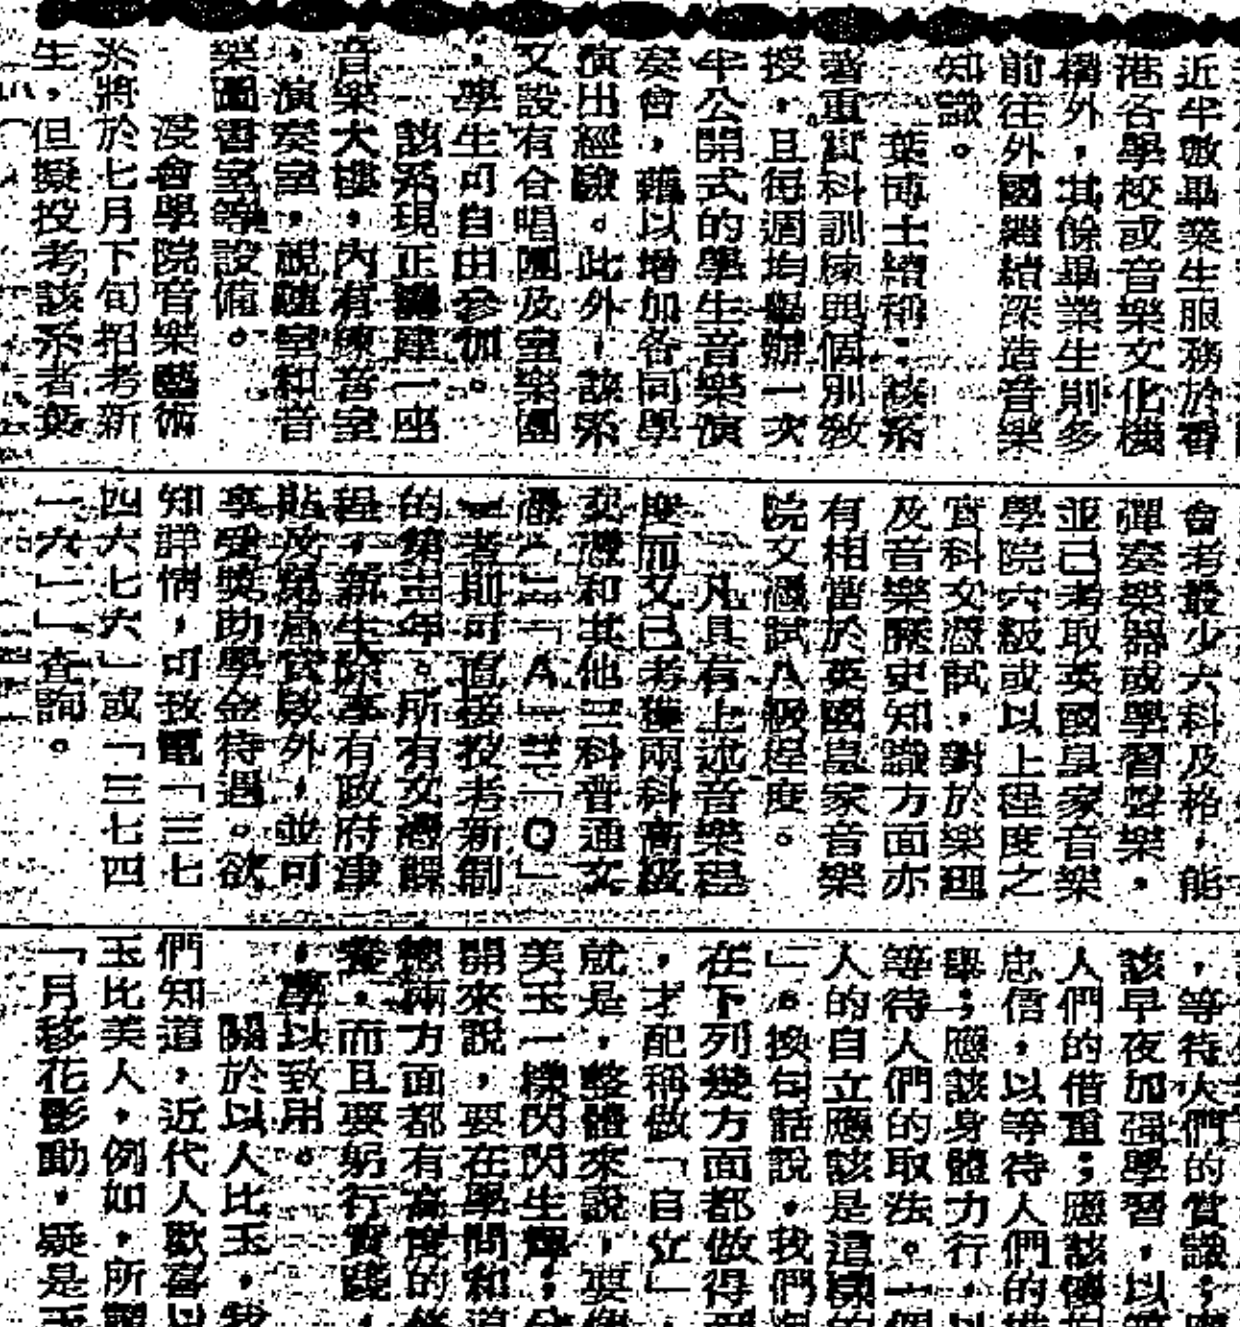 近半數畢業生服務於香
港各學校或音樂文化機
構外，其餘畢業生則多
前往外國繼續深造音樂
知識。
葉博士續稱：該系
著重實科訓練與個別教
授，且每週均舉辦一次
半公開式的學生音樂演
奏會，藉以增加各同學
演出經驗。此外，該系
又設有合唱團及室樂團
，學生可自由參加。
該系現正籌建一座
音樂大樓，內有練音室
，演奏室，聽隨室和音
樂圖書室等設備。
浸會學院音樂藝術
系將於七月下旬招考新
生，但擬投考該系者須
會考最少六科及格，能
彈奏樂器或學習聲樂，
並已考取英國皇家音樂
學院六級或以上程度之
實科文憑試，對於樂理
及音樂歷史知識方面亦
有相當於英國皇家音樂
院文憑試八級程度。
凡具有上述音樂程
度而又已考獲兩科高級
文憑和其他三科普通文
憑（二「A」三「O」
）者則可直接投考新制
的第二年。所有文憑課
程，新生除享有政府津
貼及免息貸款外，並可
享受獎助學金待遇。欲
知詳情，可致電「三七
四六七六」或「三七四
一六一」查詢。
，等待人們的賞識；
該早夜加强學習，以
人們的借重；應該
忠信，以等待人們的
舉；應該身體力行，以
等待人們的取法。一個
人的自立應該是這樣的
」。換句話說，我們
在下列幾方面都做得
，才配稱做「自立」
就是，整體來說，要像
美玉一樣閃閃生輝；分
開來說，要在學問和道
德兩方面都有高度的修
養，而且要躬行實踐，
，學以致用。
關於以人比玉，我
們知道，近代人歡喜以
玉比美人，例如，所謂
「月移花影動，疑是玉